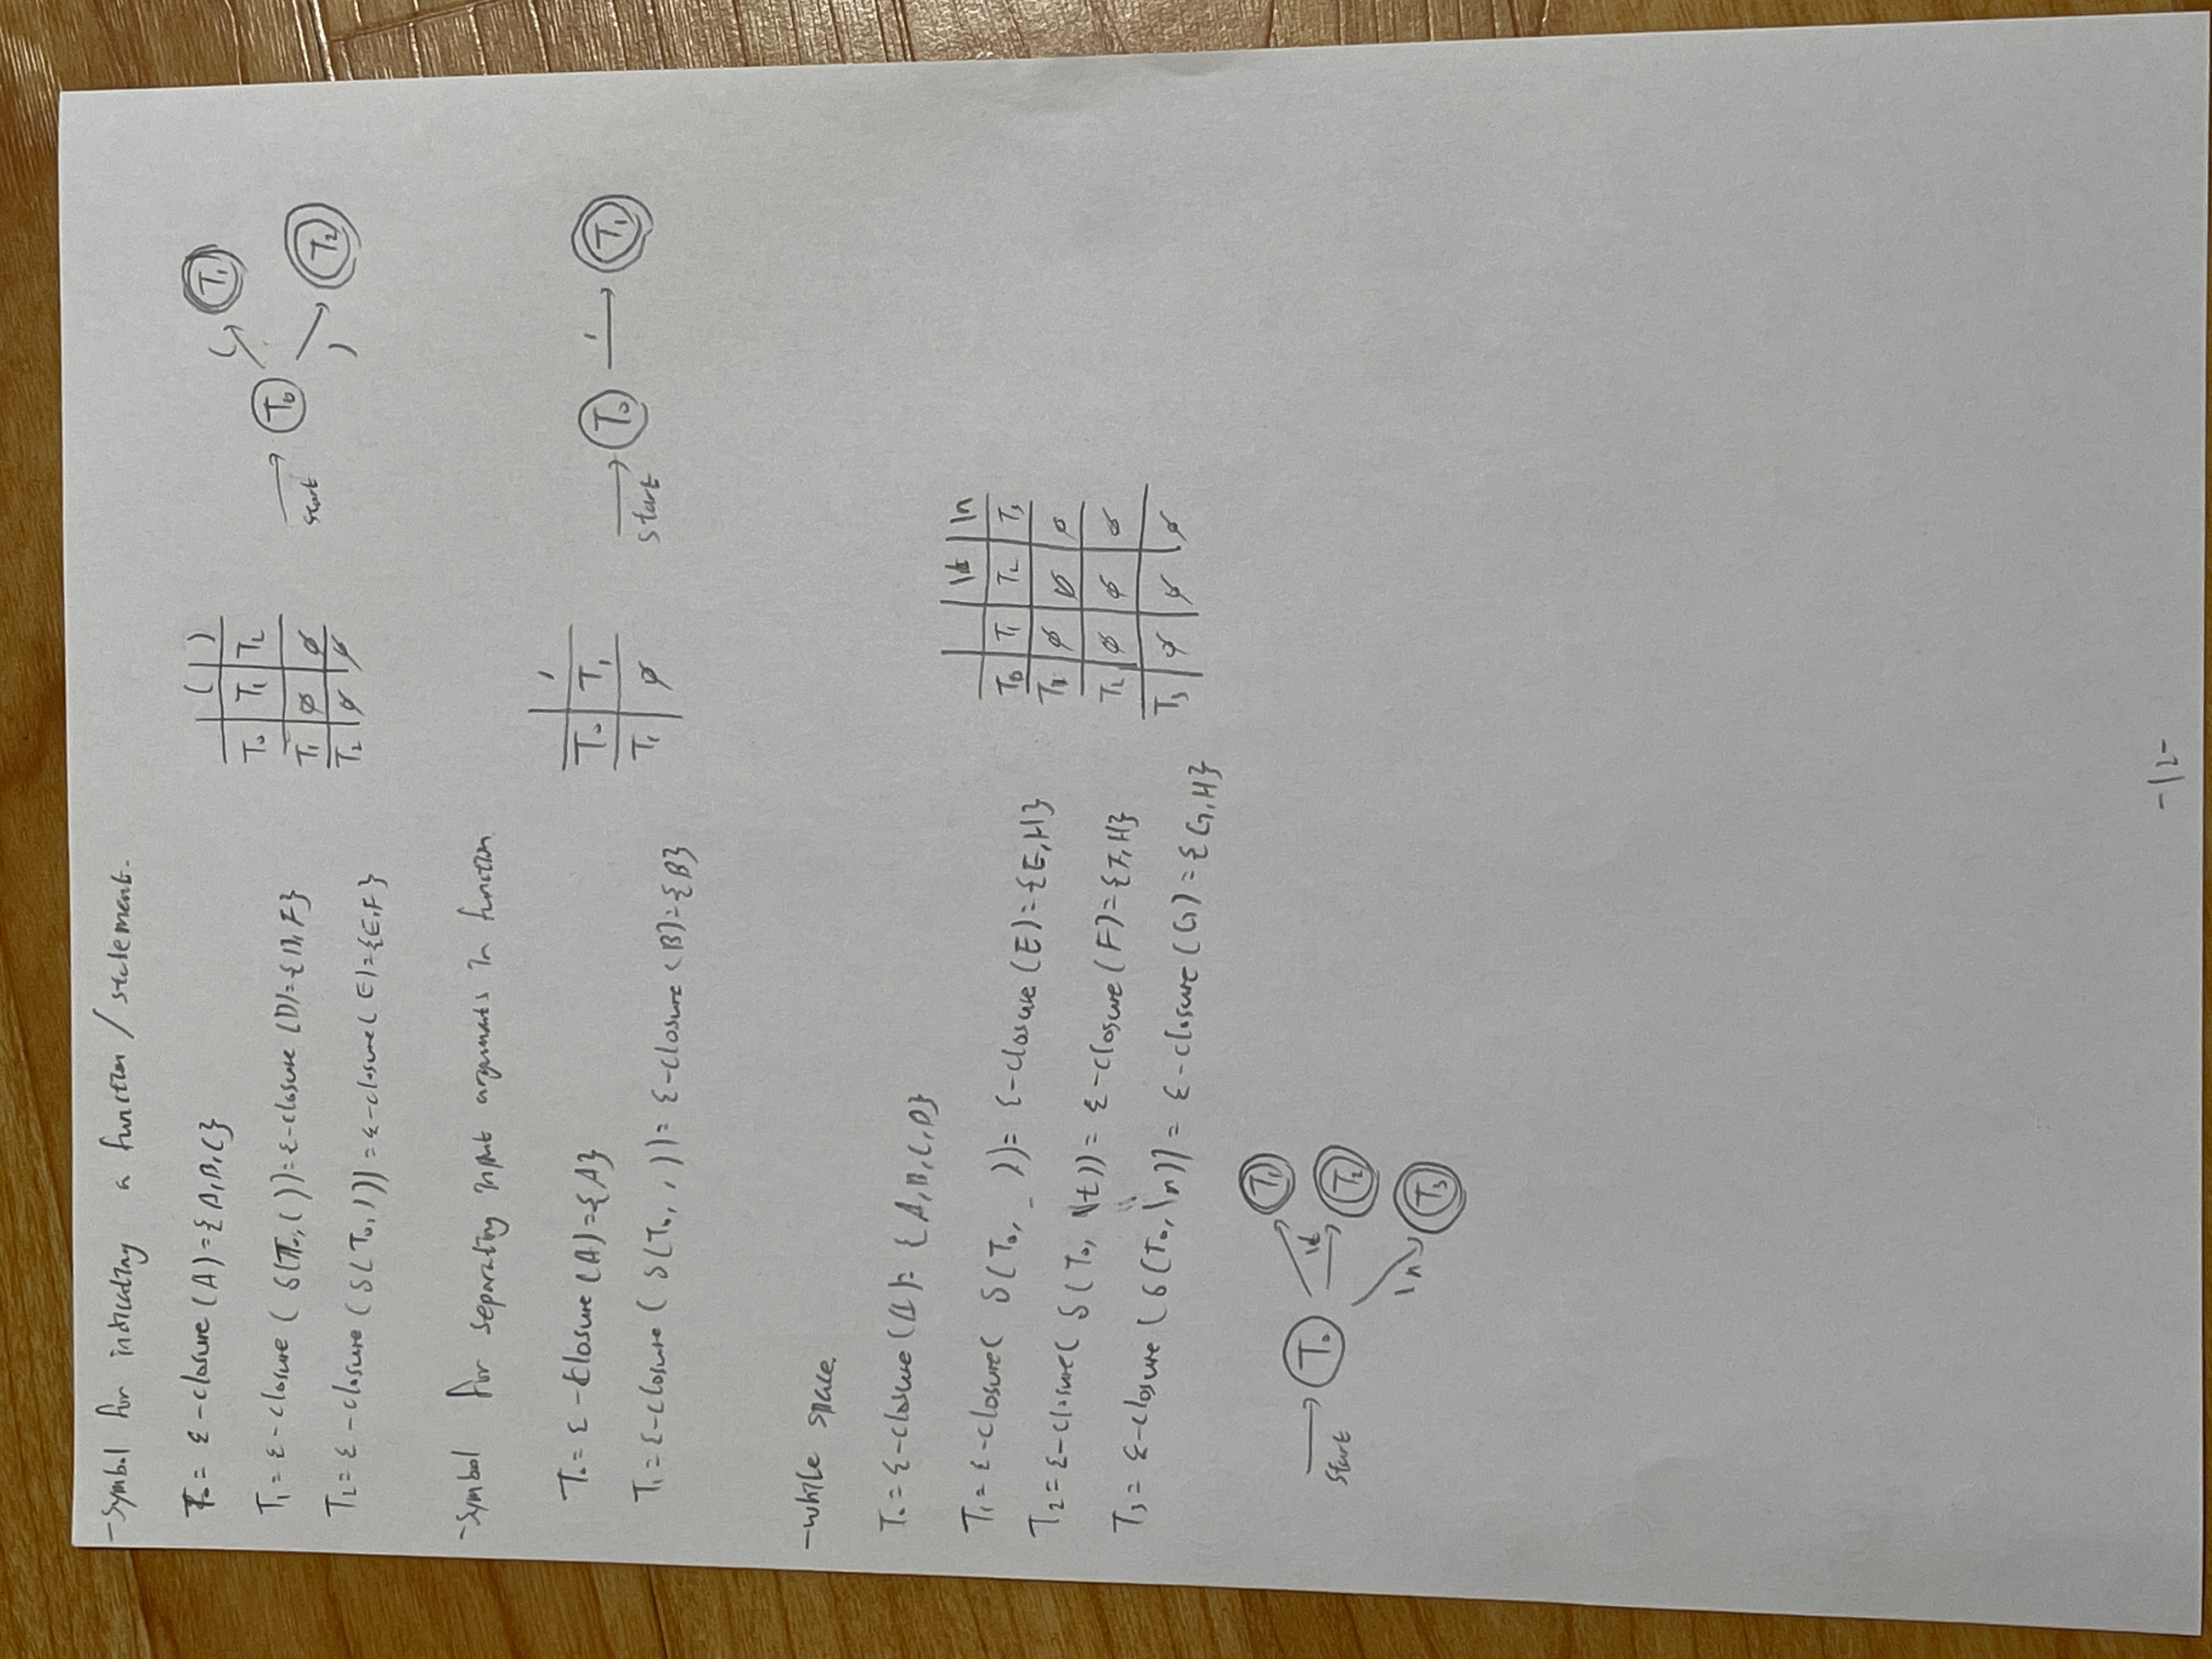 -Symbol for indicating a function / statement.
T₀ = ε-closure (A) = {A, B, C}
T₁ = ε-closure ( δ(T₀, ( )) = ε-closure (D) = {D, F}
T₂ = ε-closure (δ(T₀, ) )) = ε-closure( E) = {E, F}
( )
T₀ T₁ T₂
T₁ ∅ ∅
T₂ ∅ ∅
start T₀ ( T₁
) T₂
-Symbol for separating input arguments in function
T₀ = ε-closure (A) = {A}
T₁ = ε-closure ( δ(T₀, , )) = ε-closure (B) = {B}
,
T₀ T₁
T₁ ∅
start T₀ , T₁
-white space.
T₀ = ε-closure (A) = {A, B, C, D}
T₁ = ε-closure( δ(T₀, _ )) = ε-closure (E) = {E, H}
T₂ = ε-closure( δ(T₀, \t)) = ε-closure (F) = {F, H}
T₃ = ε-closure (δ(T₀, \n)) = ε-closure (G) = {G, H}
\t \n
T₀ T₁ T₂ T₃
T₁ ∅ ∅ ∅
T₂ ∅ ∅ ∅
T₃ ∅ ∅ ∅
start T₀ T₁
\t T₂
\n T₃
-12-